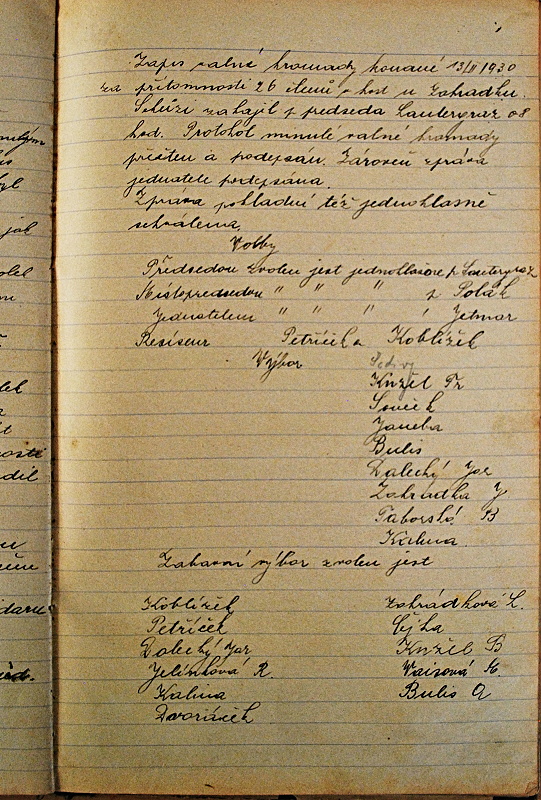 Zápis valné hromady konané 13/II 1930
za přítomnosti 26 členů a host u Zahrádku.
Schůzi zahájil p předseda Lautergraz o 8
hod. Protokol minulé valné hromady
přečten a podepsán. Zároveň zpráva
jednatele podepsána.
Zpráva pokladní též jednohlasně
schválena.
Volby
Předsedou zvolen jest jednohlasně p Lautergraz
Místopředsedou " " " p Polák
Jednatelem " " " " Jetmar
Reviseur Petříček a Koblížek
Výbor Šedivý
Knžel Fr
Souček
Janeba
Bulis
Dalechý Jar
Zahrádka J
Táborský B
Kalina
Zábavní výbor zvolen jest
Koblížek
Petříček
Dalechý Jar
Jelínková R.
Kalina
Dvořáček
Zahrádková L.
Čejka
Knžel B
Vaisová M.
Bulis A